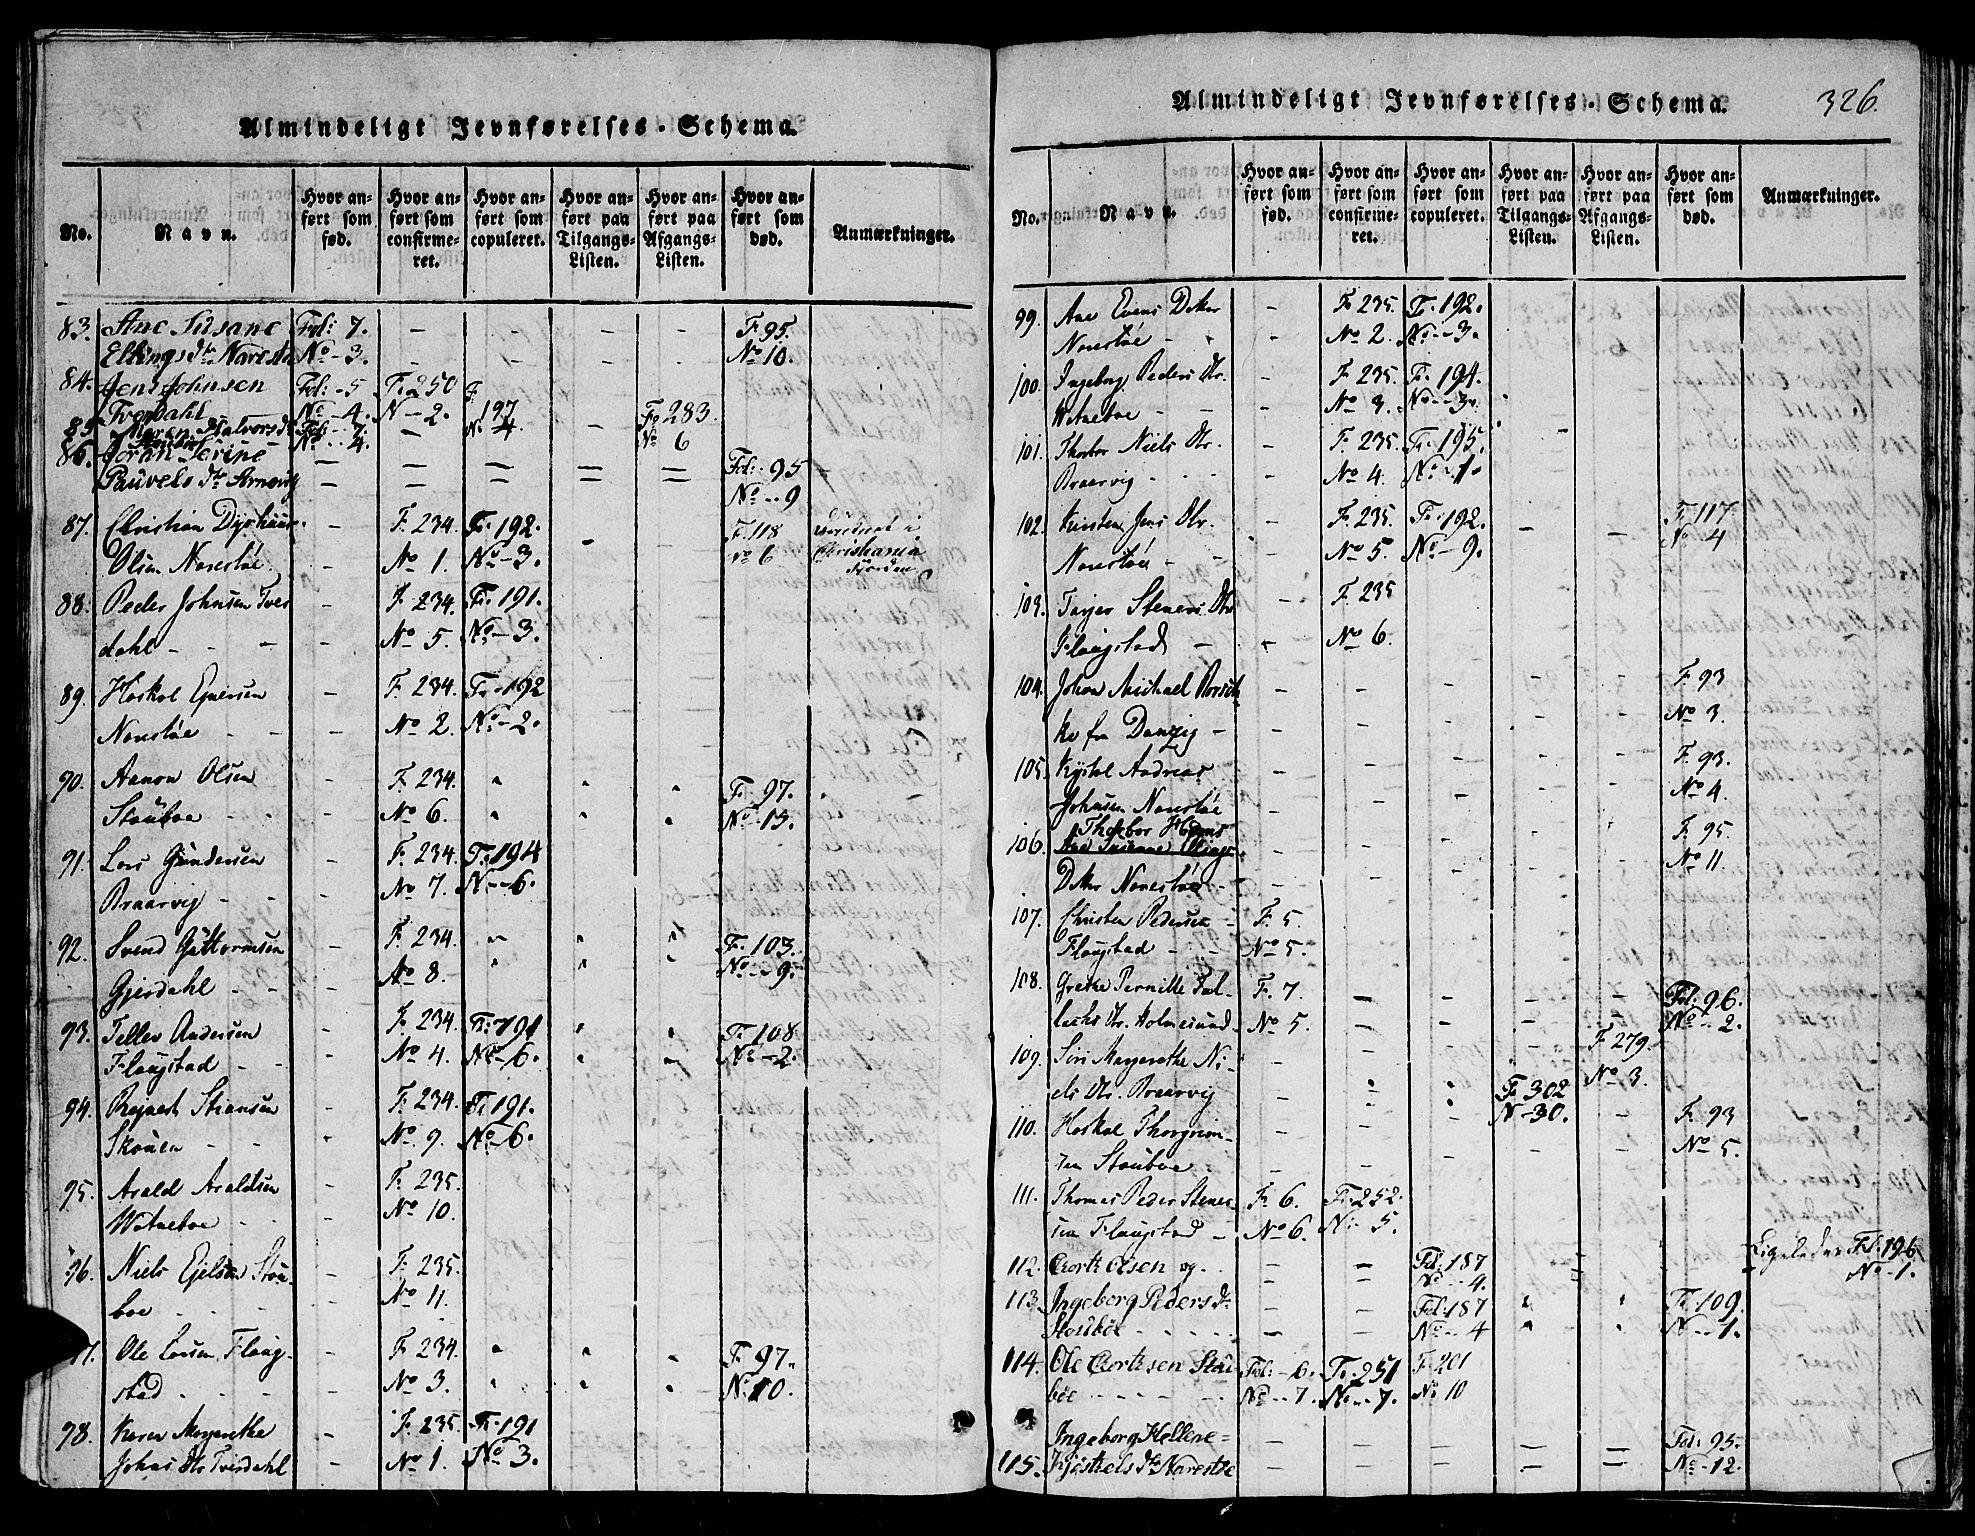 Almindeligt Jevnførelses-Schema.
No. Navn. Hvor anført som fød. Hvor anført som confirmeret. Hvor anført som copuleret. Hvor anført paa Tilgangs-Listen. Hvor anført paa Afgangs-Listen. Hvor anført som død. Anmærkninger.
83. Ane Susane Fol: 7. - - - - F. 95.
Ellings dtr Naresta No - 3. No 10.
84. Jens Johnsen Fol: - 5 F. 250 F.
Tverdahl No - 4. N - 2. 197 Fo 283.
85. Maren Halvorsd Fol: - 7. - N. 4 - No 6
No - 4.
86. Joran Serine - = = = = Fol: - 95
Pauvels dtr Arnevig - - - - - No - - 9
87. Christian Dyrhuus - F. 234. F. 192. F. 118 i
Olsen Narestøe. - No 1. No - 3. - No 6 Christiania
88. Peder Johnsen Tver - F. 234. F. 191.
dahl - - - No 5. No - 3.
89. Hoskol Ejversen - F. 234. F. - 192
Narestøe - - No 2. No - 2.
90. Aanon Olsen - F. 234. F. 97.
Stouboe - - No 6. No - 15.
91. Lars Gundersen - F. 234. F. 194
Braarvig - - No 7. N. - 6.
92. Svend Guttormsen - F. 234. F. 103.
Gjerdahl - - No 8. No - 9.
93. Tellev Andersen - F. 234. F. 191 F. 108
Flaugstad - - No 4. No - 6. No - 2.
94. Reyert Stiansen - F. 234. F. 191.
Skouen - - No 9. No - 6.
95. Arald Araldsen - F. 235.
Watneboe - - No 10.
96. Niels Ejelsen Stou- - F. 235.
boe - - - No 11.
Ole Larsen Flaug- - F. 234 F. 97.
stad - - - No 3. N. 10.
98. Karen Margrethe - F. 235. F. 191
Johns dtr Tverdahl - No 1. No 3.
Almindeligt Jevnførelses-Schema. 326.
No. Navn. Hvor anført som fød. Hvor anført som confirmeret. Hvor anført som copuleret. Hvor anført paa Tilgangs-Listen. Hvor anført paa Afgangs-Listen. Hvor anført som død. Anmærkninger.
99. Ane Evens Dtter - F. 235 F. 192.
Narestøe - - No 2. No - 3.
100. Ingeborg Peders Dtr. - F. 235. F. 194.
Watneboe - - - No 3. No - 3.
101. Thorbor Niels Dtr. - F. 235. F. 195.
Braarvig - - - No 4. No - 1.
102. Kirsten Jens Dtr. - F. 235. F. 192. - F. 117
Narestøe - - No 5. No - 9. - No 4
103. Tarjer Steners Dtr - F. 235
Flaugstad - - No 6.
104. Johan Michael - - - - - F. 93
ke fra Danzig - - - - - - No 3.
105. Kistol Andreas - - - - - F. 93.
Johnsen Narestøe - - - - - No 4.
Thorbor
106. Ane Susanne Ellings F. 95
Dtter Narestøe - No 11.
107. Christen Pedersen - F. 5.
Flaugstad - - No 5.
108. Grethe Pernille Fal- F. 7. - - - - Fol: 96.
lachs Dtr. Holmesund. No 5. - - - - No - 2.
109. Siri Margrethe Ni- - - - - F. 279.
els Dtr. Braarvig F. 302 No 3.
110. Hoskol Thorgrim- - - - N - 30. - F. 93
sen Stouboe - - - - - No 5.
111. Thomas Peder Stener- F. 6. F. 252.
sen Flaugstad - No 6. N. - 5.
112. Cortt Olsen og. - - Fol: 187 Ligeledes Fol: 196
No - - 4. No - 1.
113. Ingeborg Peders dr - - Fol: 187 F. 109.
Stoubøe - - - - - - No - - 4 N - - 1.
114. Ole Corttsen Stou- Fol: - 6. F. 251 F. 201
bøe - - - - No - - 7. No - - 7. No 10
Ingeborg Hellene = - - - - - Fol: - 95.
115. Kjøstels dtr Narestøe - - - - - No - 12.